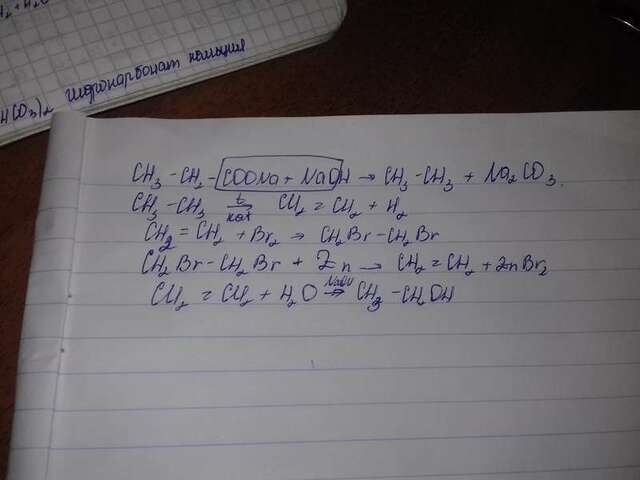 H(CO3)2 гидрокарбонат кальция
CH3 - CH2 - COONa + NaOH → CH3 - CH3 + Na2CO3.
CH3 - CH3 t кат → CH2 = CH2 + H2
CH2 = CH2 + Br2 → CH2Br - CH2Br
CH2Br - CH2Br + Zn → CH2 = CH2 + ZnBr2
CH2 = CH2 + H2O NaOH → CH3 - CH2OH